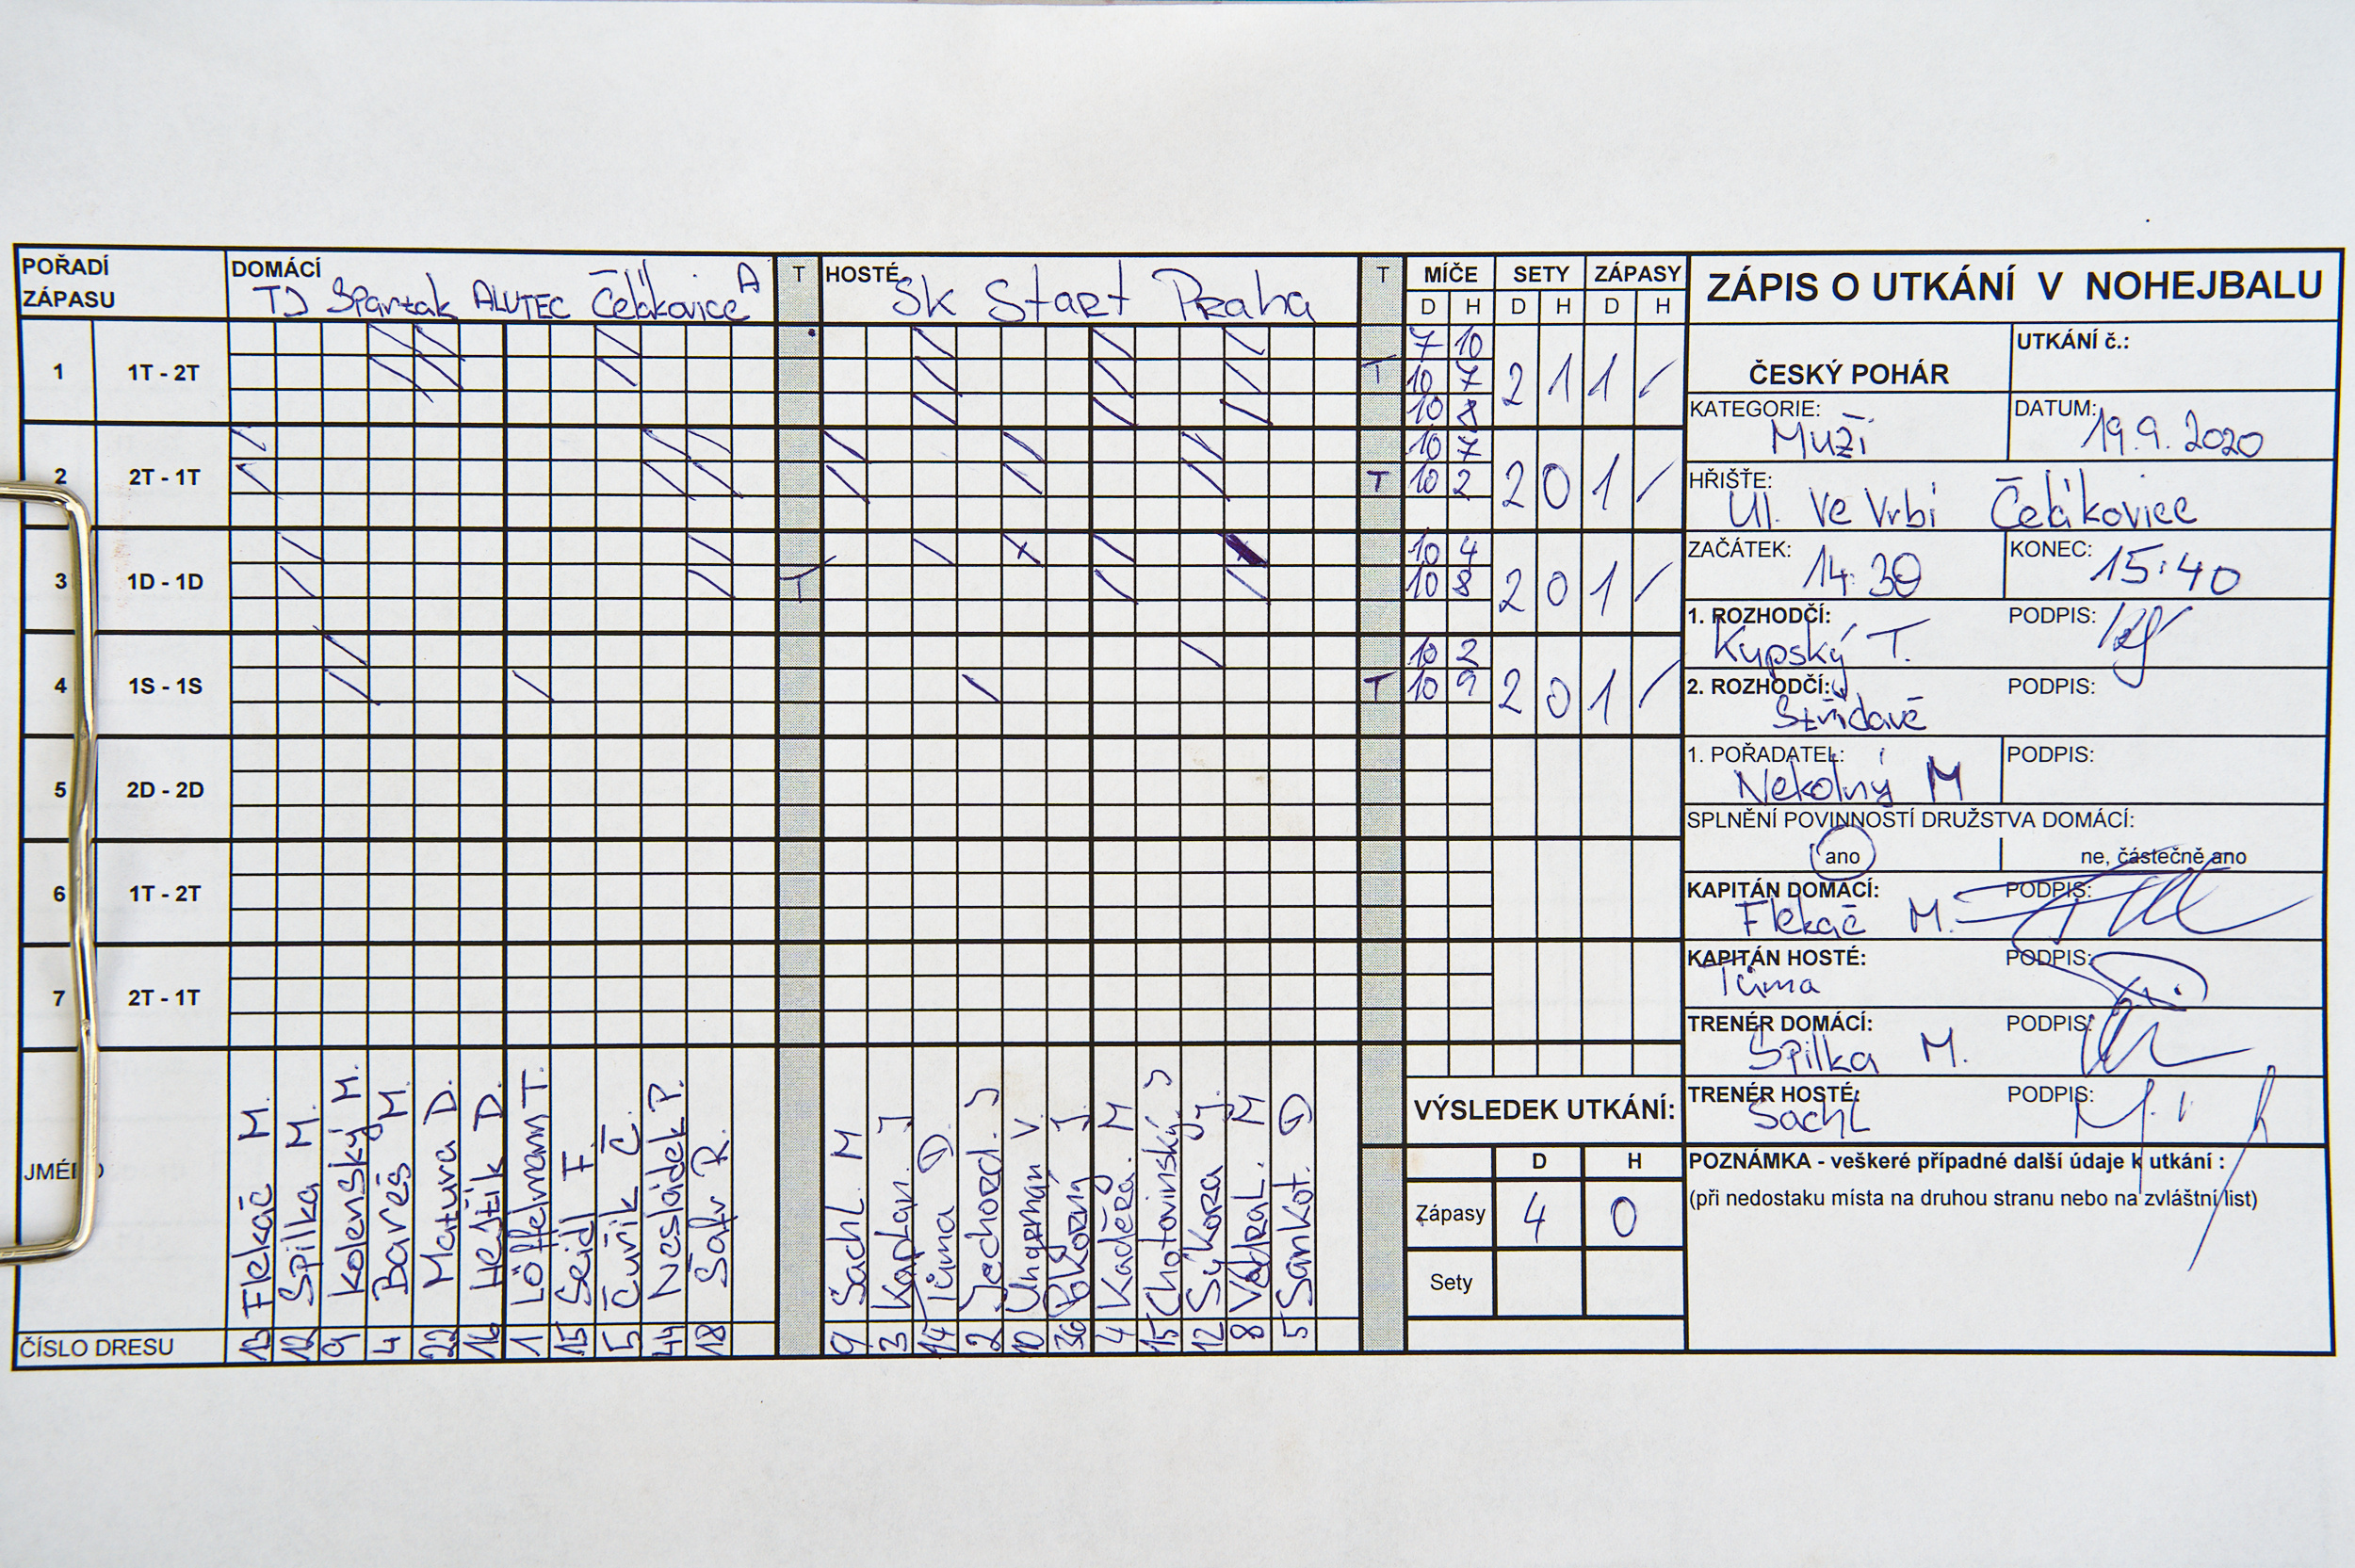 POŘADÍ ZÁPASU
DOMÁCÍ TJ Spartak ALUTEC Čelákovice A
T
HOSTÉ SK Start Praha
T
MÍČE SETY ZÁPASY
D H D H D H
1 1T - 2T
7 10
T 10 7 2 1 1 /
10 8
2 2T - 1T
10 7
T 10 2 2 0 1 /
3 1D - 1D
10 4
T 10 8 2 0 1 /
4 1S - 1S
10 2
T 10 9 2 0 1 /
5 2D - 2D
6 1T - 2T
7 2T - 1T
JMÉNO
Flekač M.
Spilka M.
Kolenský M.
Bareš M.
Matura D.
Heštík D.
Löffelmann T.
Seidl F.
Čuřík Č.
Nesládek P.
Šafr R.
Šachl. M
Kaplan. J
Tůma D.
Jechord. J
Ungrman V.
Pokorný J.
Kaděra. M
Chotovinský J
Sýkora J.
Vodral. M
Sankot. D
ČÍSLO DRESU 13 12 9 4 22 16 1 15 5 44 18
9 3 14 2 10 36 4 15 12 8 5
VÝSLEDEK UTKÁNÍ:
D H
Zápasy 4 0
Sety
ZÁPIS O UTKÁNÍ V NOHEJBALU
ČESKÝ POHÁR
UTKÁNÍ č.:
KATEGORIE: Muži
DATUM: 19.9.2020
HŘIŠTE: Ul. Ve Vrbí Čelákovice
ZAČÁTEK: 14:30
KONEC: 15:40
1. ROZHODČÍ: Kupský T.
PODPIS:
2. ROZHODČÍ: Střídavě
PODPIS:
1. POŘADATEL: Nekolný M
PODPIS:
SPLNĚNÍ POVINNOSTÍ DRUŽSTVA DOMÁCÍ:
ano ne, částečně ano
KAPITÁN DOMÁCÍ: Flekač M.
PODPIS:
KAPITÁN HOSTÉ: Tůma
PODPIS:
TRENÉR DOMÁCÍ: Spilka M.
PODPIS:
TRENÉR HOSTÉ: Šachl
PODPIS:
POZNÁMKA - veškeré případné další údaje k utkání :
(při nedostaku místa na druhou stranu nebo na zvláštní list)